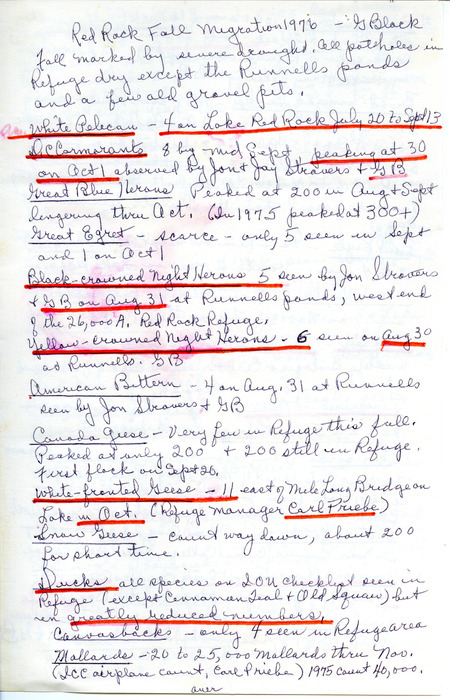 Red Rock Fall Migration 1976 - G Black
Fall marked by severe drought. All potholes in
Refuge dry except the Runnells ponds
and a few old gravel pits.
White Pelican - 4 on Lake Red Rock July 20 to Sept 13
DC Cormorants 8 by mid Sept, peaking at 30
on Oct 1 observed by Jon & Jay Stravers & GB
Great Blue Herons Peaked at 200 in Aug & Sept
lingering thru Oct. (In 1975 peaked at 300+)
Great Egret - scarce - only 5 seen in Sept
and 1 on Oct 1
Black-crowned Night Herons 5 seen by Jon Stravers
& GB on Aug 31 at Runnells ponds, west end
of the 26,000 A. Red Rock Refuge.
Yellow-crowned Night Herons - 6 seen on Aug 30
at Runnells. GB
American Bittern - 4 on Aug. 31 at Runnells
seen by Jon Stravers & GB
Canada Geese - Very few in Refuge this fall.
Peaked at only 200 & 200 still in Refuge.
First flock on Sept 26.
White-fronted Geese - 11 east of Mile Long Bridge on
Lake in Oct. (Refuge manager Carl Priebe)
Snow Geese - count way down, about 200
for short time.
Ducks all species on IOU checklist seen in
Refuge (except Cinnaman Teal & Old Squaw) but
in greatly reduced numbers,
Canvasbacks - only 4 seen in Refuge area
Mallards - 20 to 25,000 mallards thru Nov.
(ICC airplane count, Carl Priebe) 1975 count 40,000.
over